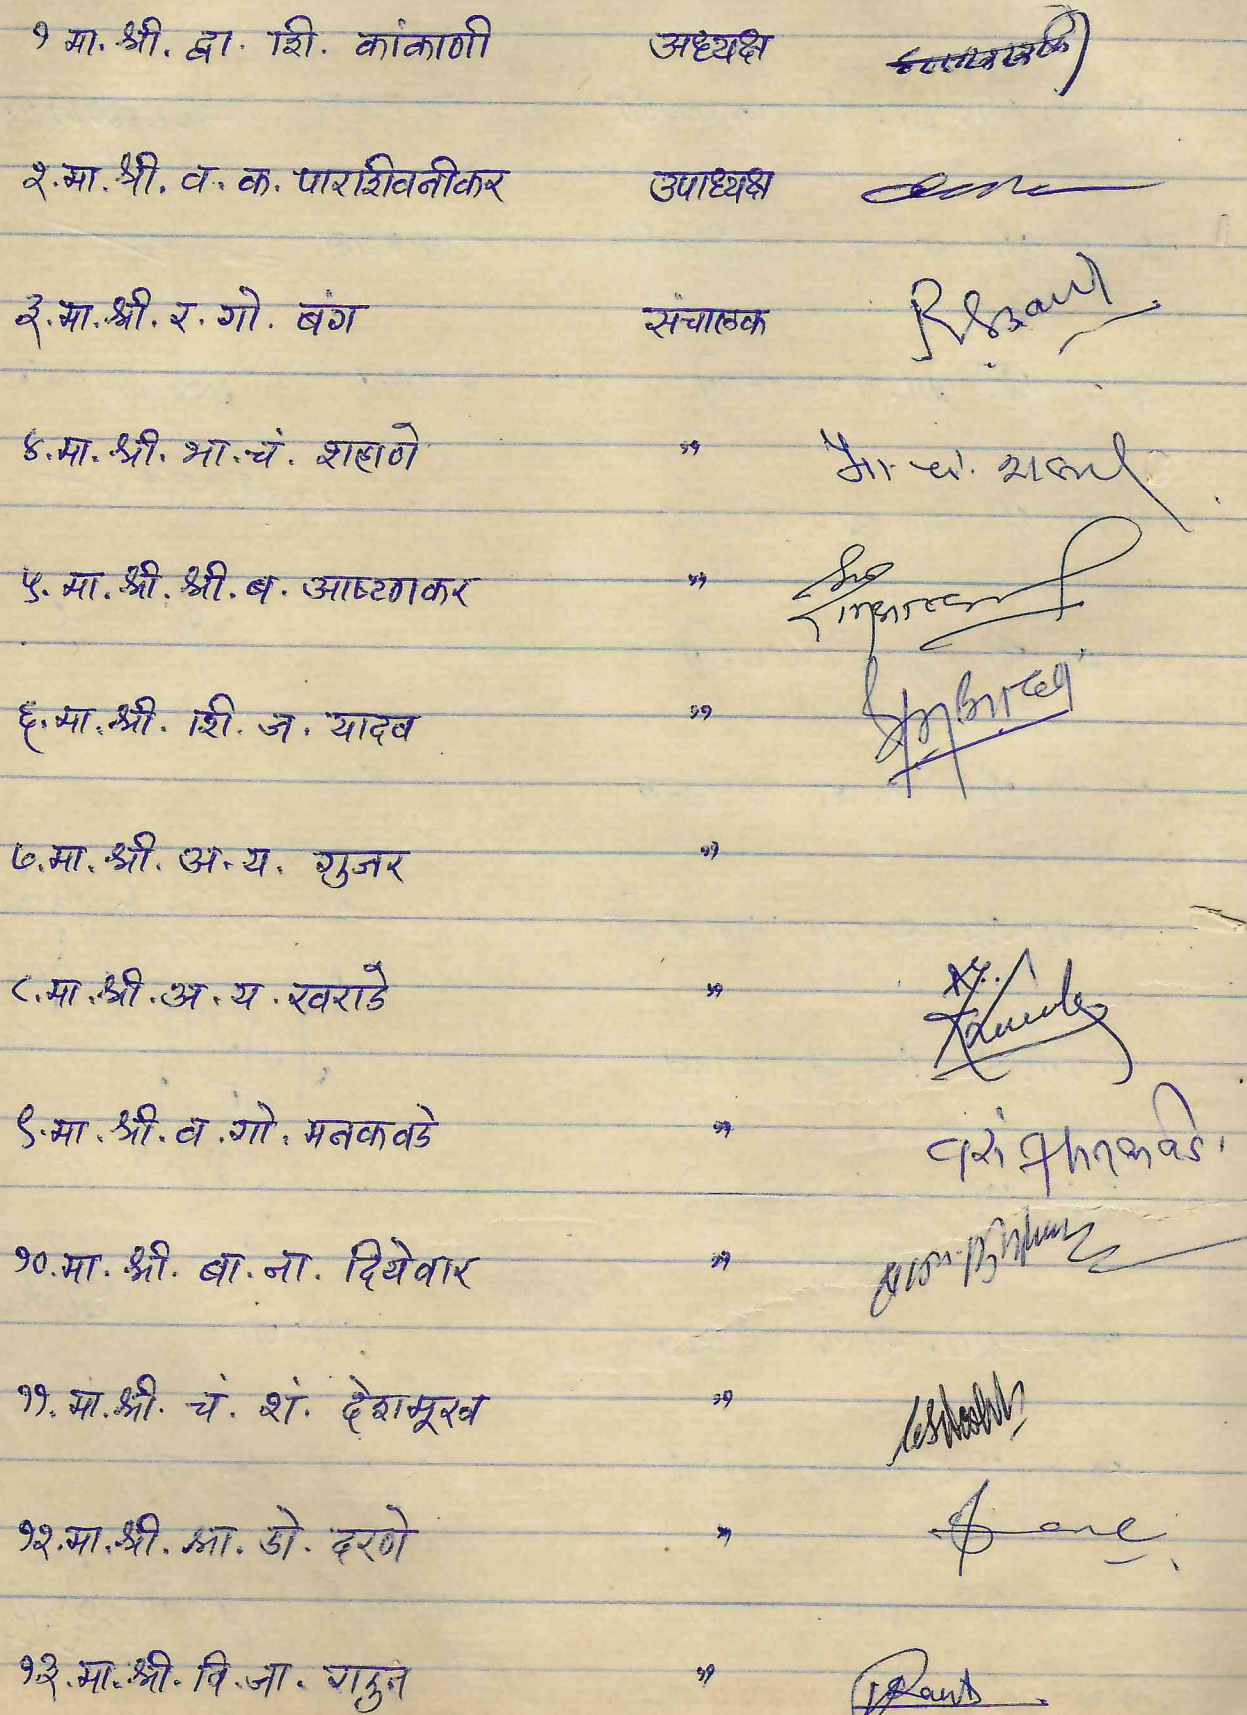 १ मा. श्री. द्वा. शि. कांकाणी अध्यक्ष
२. मा. श्री. व. क. पाराशीवनीकर उपाध्यक्ष
३. मा. श्री. र. गो. बंग संचालक
४. मा. श्री. भा. चं. शहाणे " भा. चं. शहाणे
५. मा. श्री. श्री. ब. आष्टणकर "
६. मा. श्री. शि. ज. यादव "
७. मा. श्री. अ. य. गुजर "
८. मा. श्री. अ. य. खराडे "
९. मा. श्री. व. गो. मनकवडे "
१०. मा. श्री. बा. ना. दियेवार "
११. मा. श्री. चं. शं. देशमूख "
१२. मा. श्री. आ. डो. दरणे "
१३. मा. श्री. वि. जा. राऊत "